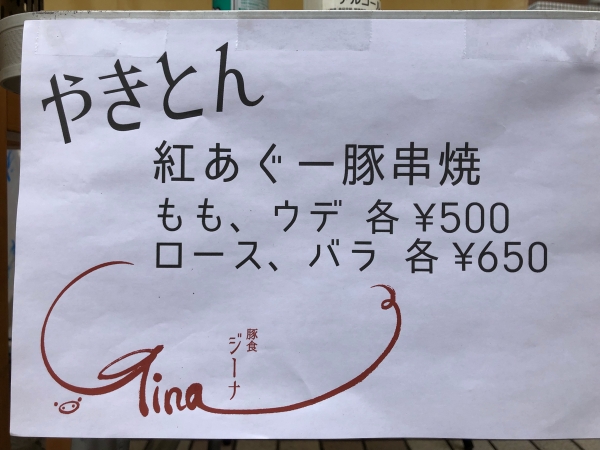 やきとん
紅あぐー豚串焼
もも、ウデ 各 ¥500
ロース、バラ 各 ¥650
豚食
ジーナ
Gina